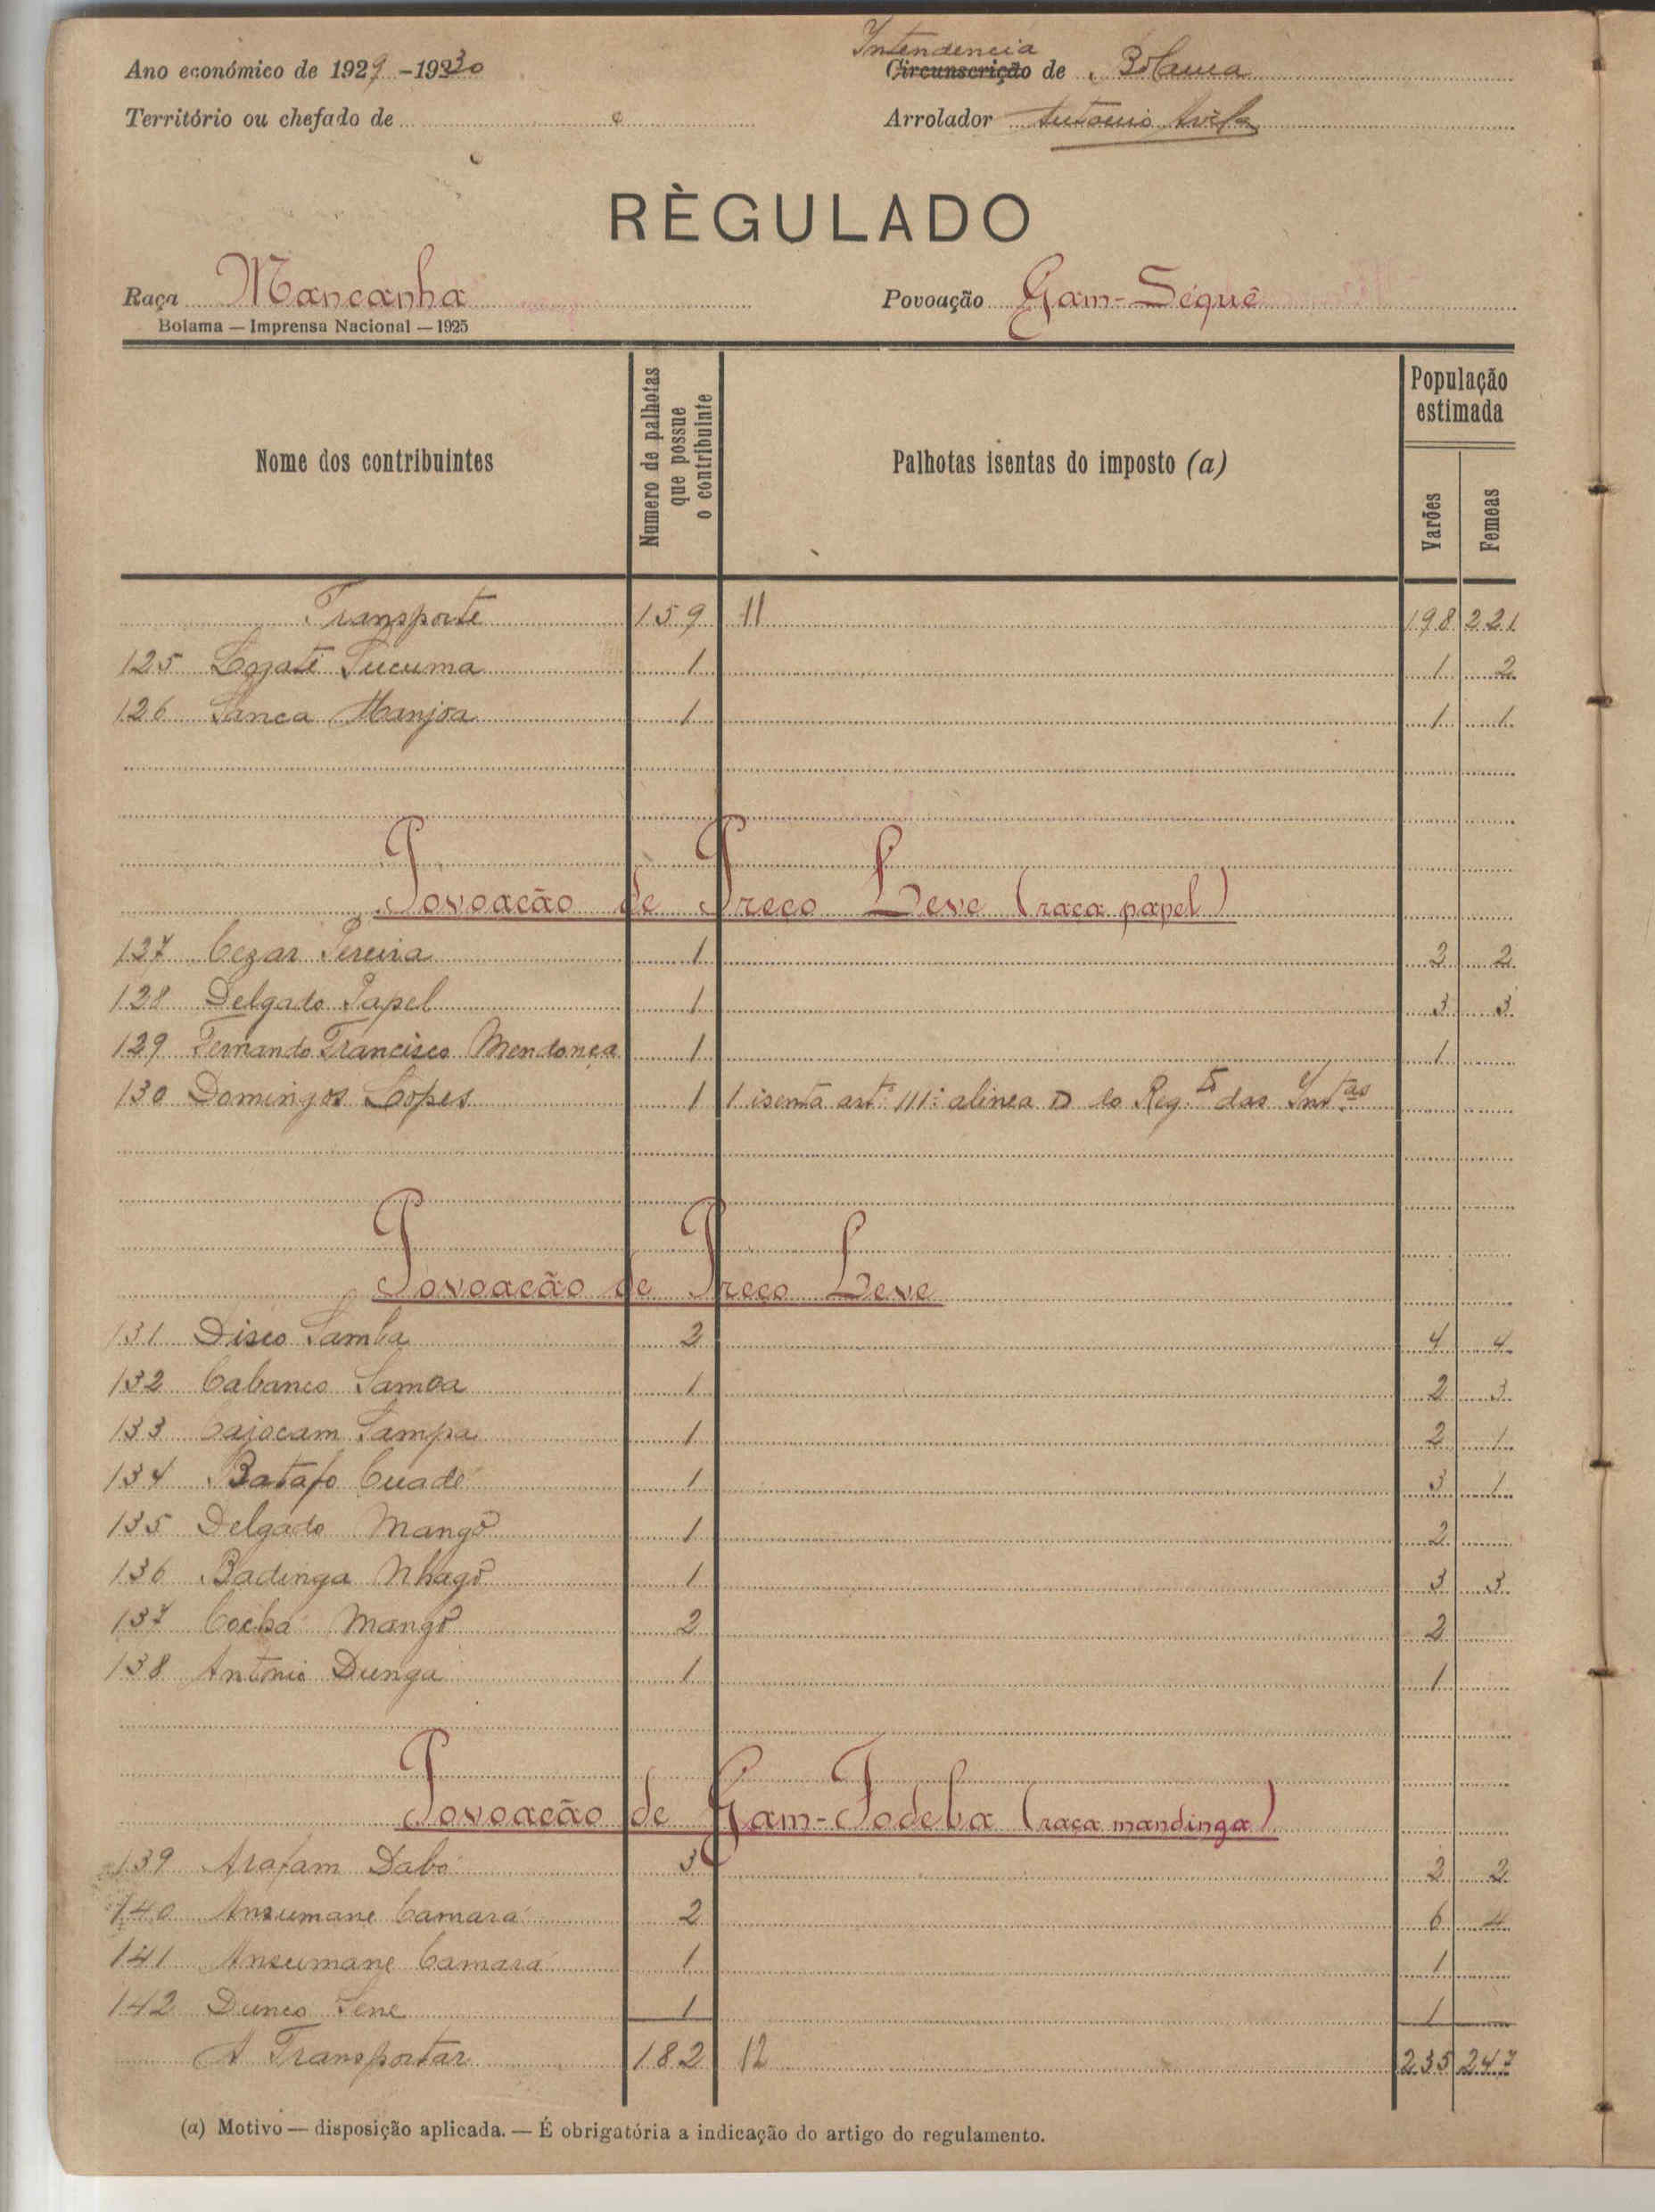 Ano económico de 1929-1930
Intendencia
Circunscrição de Bolama
Território ou chefado de
Arrolador Antonio Avila
RÈGULADO
Raça Mancanha
Povoação Gam-Séquê
Bolama — Imprensa Nacional — 1925
Nome dos contribuintes
Numero de palhotas que possue o contribuinte
Palhotas isentas do imposto (a)
População estimada
Varões
Femeas
Transporte 159 11 198 221
125 Lozatê Tucuma 1 1 2
126 Sanca Manjoa 1 1 1
Povoacão de Preco Leve (raca papel)
127 Cezar Pereira 1 2 2
128 Delgado Papel 1 3 3
129 Fernando Francisco Mendonça 1 1
130 Domingos Lopes 1 1 isenta artº 111º alinea D do Reg.to das Intas
Povoacão de Preco Leve
131 Disco Samba 2 4 4
132 Cabanco Samoa 1 2 3
133 Cajocam Sampa 1 2 1
134 Batafo Cuadé 1 3 1
135 Delgado Mangô 1 2
136 Badinga Nhagô 1 3 3
137 Cocha Mangô 2 2
138 António Dunga 1 1
Povoacão de Gam-Fodeba (raca mandinga)
139 Arafam Dabó 3 2 2
140 Ansumane Camará 2 6 4
141 Ansumane Camará 1 1
142 Dunco Sene 1 1
A Transportar 182 12 235 247
(a) Motivo — disposição aplicada. — É obrigatória a indicação do artigo do regulamento.